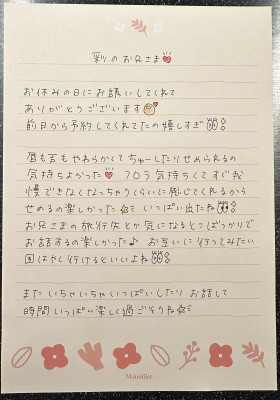 彩のお兄さま
お休みの日にお誘いしてくれて
ありがとうございます
前日から予約してくれてたの嬉しすぎ
唇も舌もやわらかくてちゅーしたりせめられるの
気持ちよかった フロウ気持ちくてすぐ我
慢できなくなっちゃうくらいに感じてくれるから
せめるの楽しかった いっぱい出たね
お兄さまの旅行先とか気になるとこばっかりで
お話するの楽しかった♪ お互いに行ってみたい
国はやく行けるといいよね
またいちゃいちゃいっぱいしたり お話して
時間いっぱい楽しく過ごそうね
Monolike